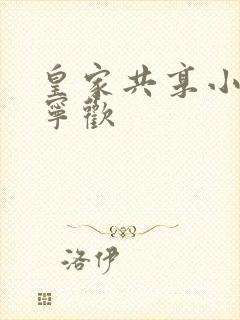 皇家共享小
寧歡
洛伊